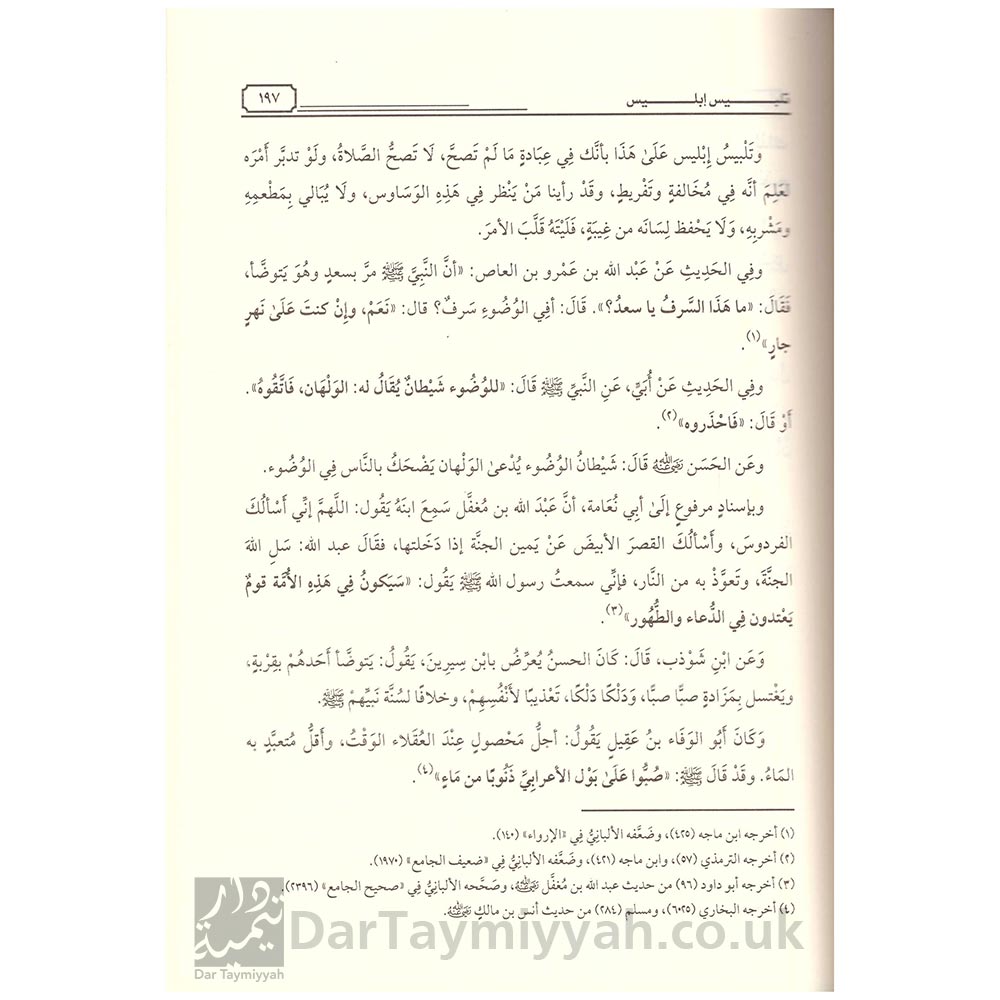 تلبـــيس إبلـــيس
١٩٧
وتَلْبيسُ إِبْليس عَلَىٰ هَذَا بأنَّك فِي عِبَادةٍ مَا لَمْ تَصحَّ، لَا تَصحُّ الصَّلاةُ، ولَوْ تدبَّر أَمْرَه
لعَلِمَ أنَّه فِي مُخَالفةٍ وتَفْريطٍ، وقَدْ رأينا مَنْ يَنْظر فِي هَذِهِ الوَسَاوس، ولَا يُبَالي بِمَطْعمِهِ
ومَشْربِهِ، وَلَا يَحْفظ لِسَانَه من غِيبَةٍ، فَلَيْتَهُ قَلَّبَ الأمرَ.
وفِي الحَدِيثِ عَنْ عَبْد الله بن عَمْرو بن العاص: «أنَّ النَّبِيَّ ﷺ مرَّ بسعدٍ وهُوَ يَتوضَّأ،
فَقَالَ: «ما هَذَا السَّرفُ يا سعدُ؟». قَالَ: أفِي الوُضُوءِ سَرفٌ؟ قال: «نَعَمْ، وإِنْ كنتَ عَلَىٰ نَهرٍ
جارٍ»(١).
وفِي الحَدِيثِ عَنْ أُبَيٍّ، عَنِ النَّبِيِّ ﷺ قَالَ: «للوُضُوء شَيْطانٌ يُقَالُ له: الوَلْهَان، فَاتَّقُوهُ».
أَوْ قَالَ: «فَاحْذَروه»(٢).
وعَن الحَسَن رَضِيَ اللهُ عَنْهُ قَالَ: شَيْطانُ الوُضُوء يُدْعىٰ الوَلْهان يَضْحَكُ بالنَّاس فِي الوُضُوء.
وبإسنادٍ مرفوعٍ إلَىٰ أبي نُعَامة، أنَّ عَبْدَ الله بن مُغفَّل سَمِعَ ابنَهُ يَقُول: اللَّهمَّ إنِّي أَسْألُكَ
الفردوسَ، وأَسْألُكَ القصرَ الأبيضَ عَنْ يَمين الجنَّة إذا دَخَلتها، فقَالَ عبد الله: سَلِ اللهَ
الجنَّةَ، وتَعوَّذْ به من النَّار، فإنِّي سمعتُ رسول الله ﷺ يَقُول: «سَيَكونُ فِي هَذِهِ الأُمَّة قومٌ
يَعْتدون فِي الدُّعاء والطُّهُور»(٣).
وَعَن ابْنِ شَوْذب، قَالَ: كَانَ الحسنُ يُعرِّضُ بابْن سِيرِينَ، يَقُولُ: يَتوضَّأ أَحَدهُمْ بِقِرْبةٍ،
ويَغْتسل بِمَزَادةٍ صبًّا صبًّا، وَدَلْكًا دَلْكًا، تَعْذيبًا لأَنْفُسِهِمْ، وخلافًا لسُنَّة نَبيِّهِمْ ﷺ.
وَكَانَ أَبُو الوَفَاء بنُ عَقِيلٍ يَقُولُ: أجلُّ مَحْصولٍ عِنْدَ العُقَلاء الوَقْتُ، وأقلُّ مُتعبَّدٍ به
المَاءُ. وقَدْ قَالَ ﷺ: «صُبُّوا عَلَىٰ بَوْل الأعرابِيِّ ذَنُوبًا من مَاءٍ»(٤).
(١) أخرجه ابن ماجه (٤٢٥)، وضَعَّفه الألبانيُّ فِي «الإرواء» (١٤٠).
(٢) أخرجه الترمذي (٥٧)، وابن ماجه (٤٢١)، وضَعَّفه الألبانيُّ فِي «ضعيف الجامع» (١٩٧٠).
(٣) أخرجه أبو داود (٩٦) من حديث عبد الله بن مُغفَّل رَضِيَ اللهُ عَنْهُ، وصَحَّحه الألبانيُّ فِي «صحيح الجامع» (٢٣٩٦).
(٤) أخرجه البخاري (٦٠٢٥)، ومسلم (٢٨٤) من حديث أنس بن مالكٍ رَضِيَ اللهُ عَنْهُ.
دار تيمية
Dar Taymiyyah
DarTaymiyyah.co.uk